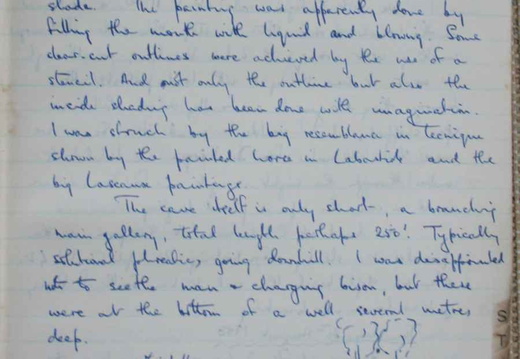 shade. The painting was apparently done by
filling the mouth with liquid and blowing. Some
clear-cut outlines were achieved by the use of a
stencil. And not only the outline but also the
inside shading has been done with imagination.
I was struck by the big resemblance in tecnique
shown by the painted horse in Labastide and the
big Lascaux paintings.
The cave itself is only short, a branching
main gallery, total length perhaps 250'. Typically
solutional phreatic, going downhill. I was disappointed
not to see the man & charging bison, but these
were at the bottom of a well several metres
deep.
S
T